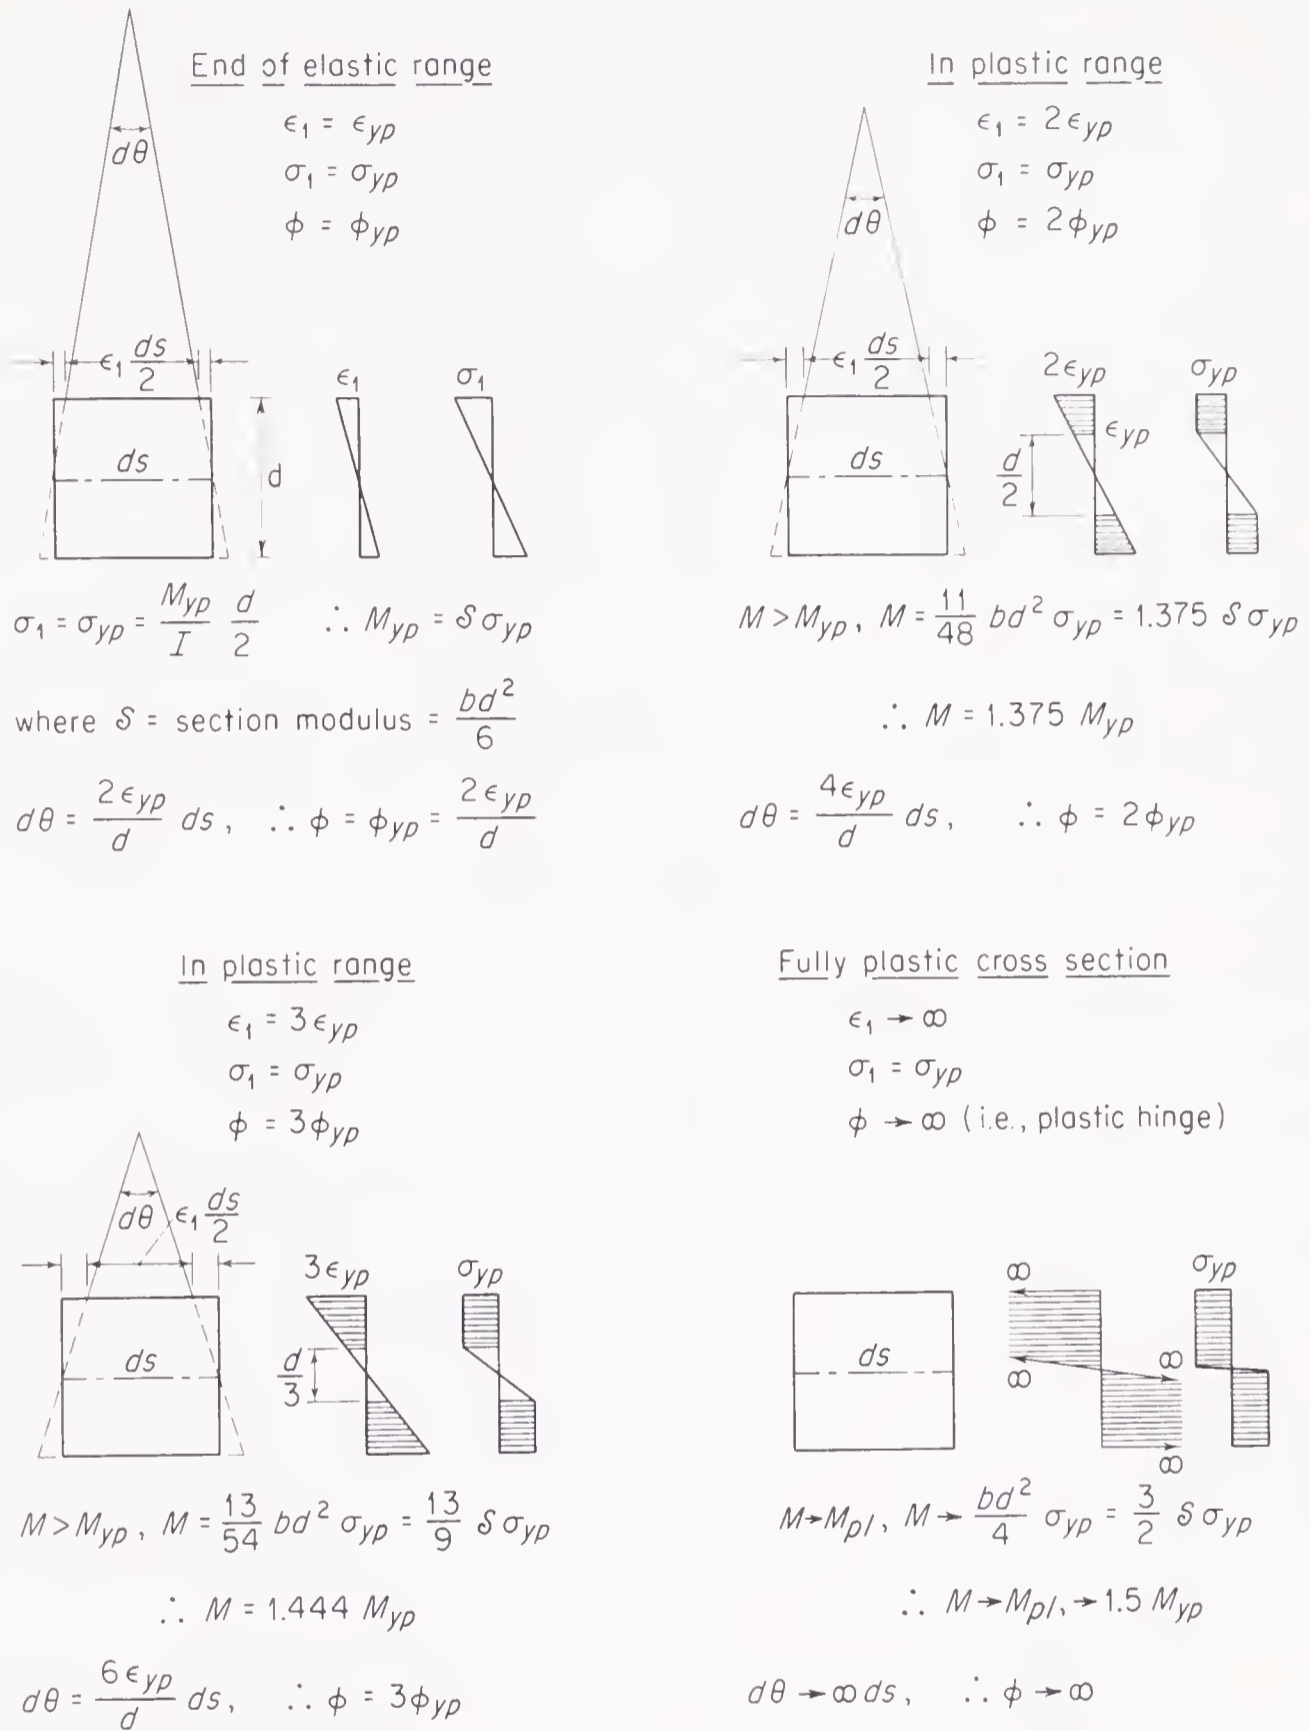 End of elastic range
ϵ₁ = ϵyp
σ₁ = σyp
ϕ = ϕyp
dθ
ϵ₁ ds/2
ds
d
ϵ₁
σ₁
σ₁ = σyp = Myp/I d/2 ∴ Myp = 𝒮 σyp
where 𝒮 = section modulus = bd²/6
dθ = 2ϵyp/d ds, ∴ ϕ = ϕyp = 2ϵyp/d
In plastic range
ϵ₁ = 2ϵyp
σ₁ = σyp
ϕ = 2ϕyp
dθ
ϵ₁ ds/2
ds
2ϵyp
ϵyp
d/2
σyp
M > Myp, M = 11/48 bd² σyp = 1.375 𝒮 σyp
∴ M = 1.375 Myp
dθ = 4ϵyp/d ds, ∴ ϕ = 2ϕyp
In plastic range
ϵ₁ = 3ϵyp
σ₁ = σyp
ϕ = 3ϕyp
dθ
ϵ₁ ds/2
ds
3ϵyp
d/3
σyp
M > Myp, M = 13/54 bd² σyp = 13/9 𝒮 σyp
∴ M = 1.444 Myp
dθ = 6ϵyp/d ds, ∴ ϕ = 3ϕyp
Fully plastic cross section
ϵ₁ → ∞
σ₁ = σyp
ϕ → ∞ (i.e., plastic hinge)
ds
∞
∞
∞
∞
σyp
M → Mpl, M → bd²/4 σyp = 3/2 𝒮 σyp
∴ M → Mpl, → 1.5 Myp
dθ → ∞ ds, ∴ ϕ → ∞